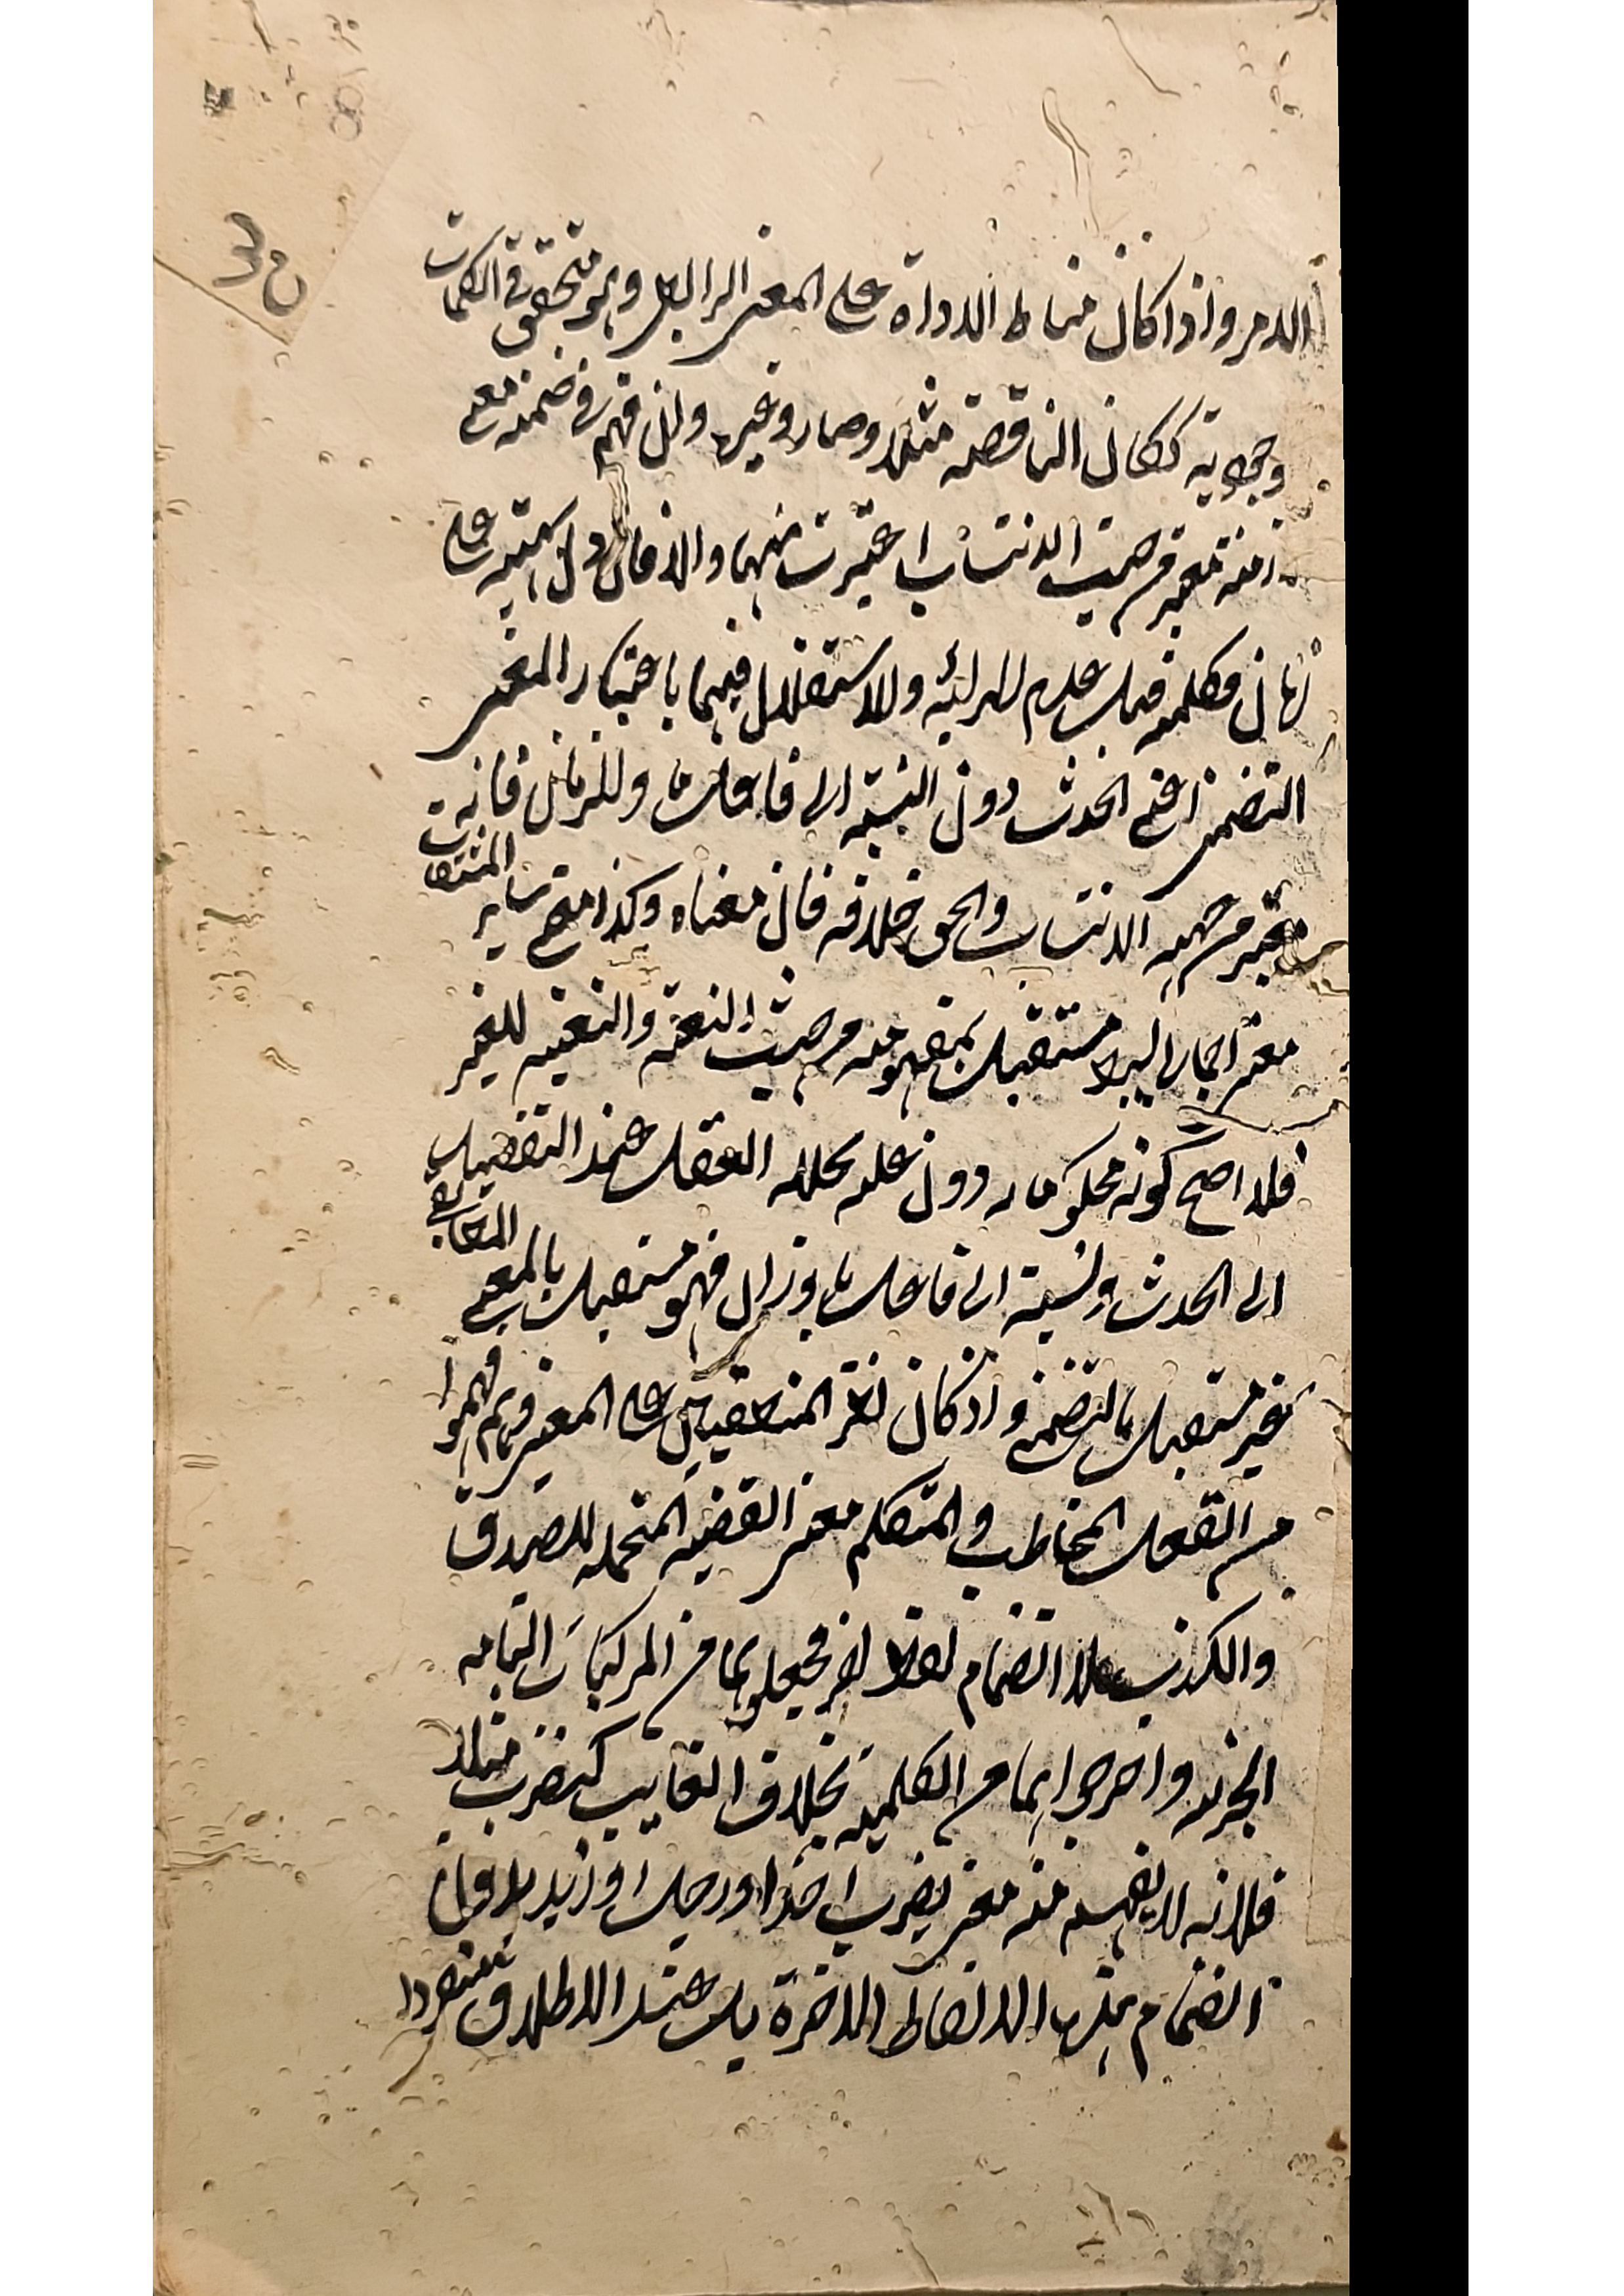 الامر واذا كان مناط الاداة على المعنى الرابطى وهو متحقق فى الكلمات
وجودية ككان الناقصة مثلا وصار وغيرها وان فهم فى ضمنه معنى
ازمنة معبر من حيث الانتساب اعتبرت منهما والا فان دل بهيئته على
زمان فكلمة قيل عدم المرآتية والاستقلال فيها باعتبار المعنى
التضمنى اعنى الحدث دون النسبة الى فاعل ما والزمان فانه
معتبر من جهة الانتساب والحق خلافه فان معناه وكذا معنى ساير المشتقات
معنى اجمالى مستقل بمفهومه من حيث والتغيير للغير
فلا صح كونه محكوما به دون عليه يحلله العقل عند التفصيل
الى الحدث ونسبة الى فاعل ما وزمان فهو مستقل بالمعنى المطابقى
غير مستقل بالتضمن واذ كان نظر المنطقيين على المعنى وهم فهموا
من الفعل المخاطب والمتكلم معنى القضية المحتملة للصدق
والكذب بلا انضمام لفظ اخر فجعلوهما من المركبات التامة
الخبرية واخرجوهما من الكلمية بخلاف الغايب كيضرب مثلا
فلانه لا يفهم منه معنى يضرب احد او رجل او زيد بدون
انضمام هذه الالفاظ الاخرة بل عند الاطلاق منفردا